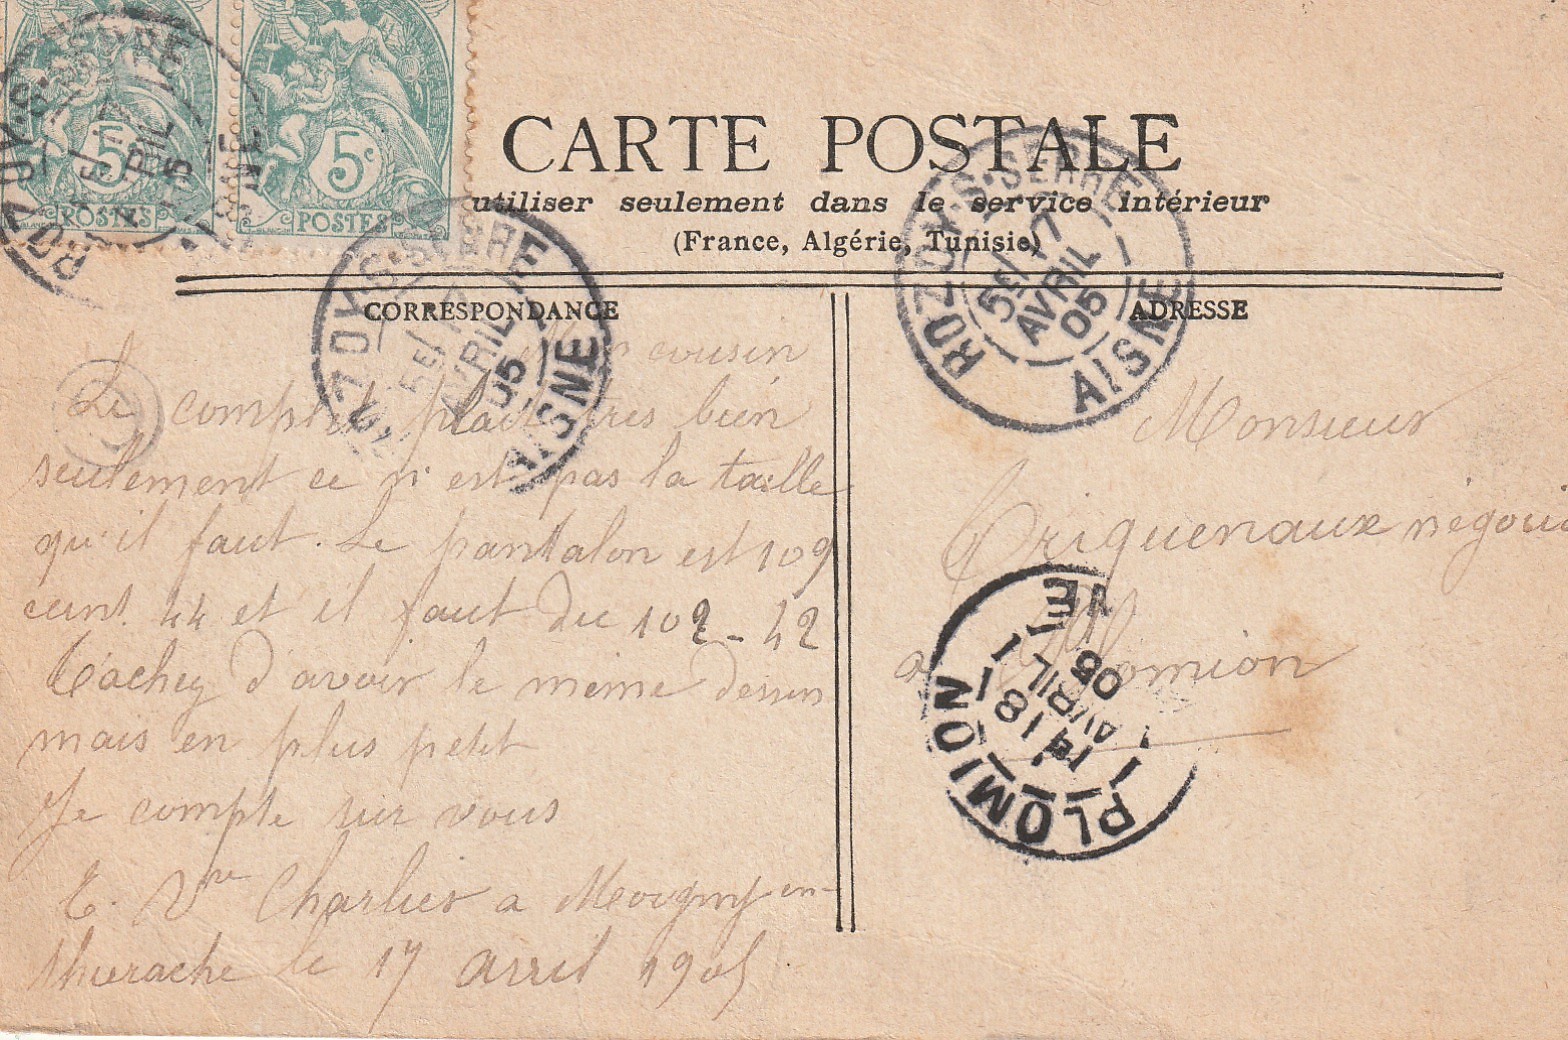 5c
POSTES
5c
POSTES
CARTE POSTALE
utiliser seulement dans le service intérieur
(France, Algérie, Tunisie)
CORRESPONDANCE
cousin
Le complet plait très bien
seulement ce n'est pas la taille
qu'il faut. Le pantalon est 109
ceint. 44 et il faut du 102 - 42
Tachez d'avoir le même dessin
mais en plus petit
Je compte sur vous
E. Vve Charlier a Morgny en
thierache le 17 avril 1905
ADRESSE
Monsieur
Criquenaux négoci
a Plomion
ROZOY-S-SERRE
5E/17
AVRIL
05
AISNE
ROZOY-S-SERRE
5E/
AVRIL
05
AISNE
ROZOY-S-SERRE
5E/17
AVRIL
05
AISNE
PLOMION
18
AVRIL
05